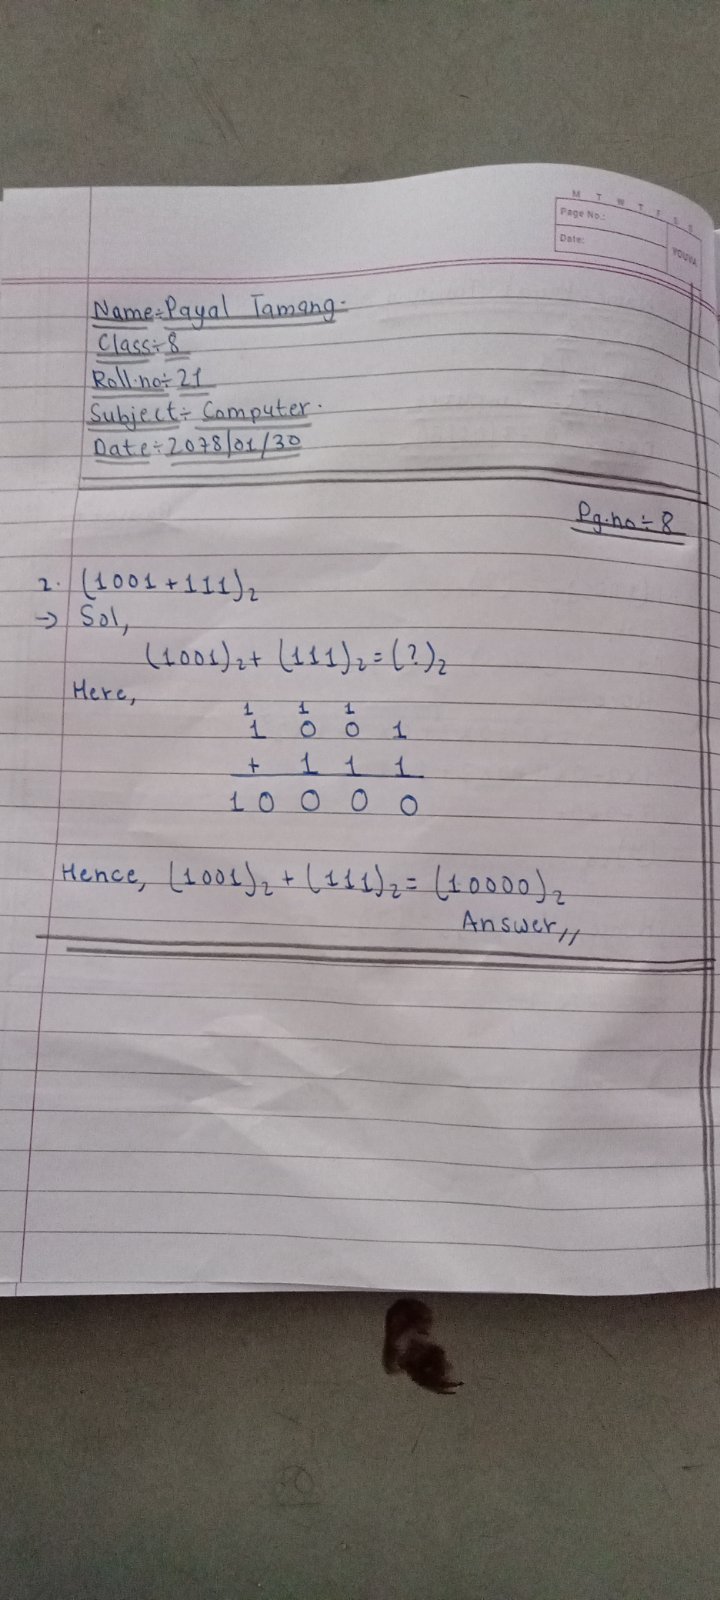 M T W T F S S
Page No.:
Date:
YOUVA
Name:-Payal Tamang.
Class:-8
Roll.no:-21
Subject:- Computer.
Date:-2078/01/30
Pg.no:-8
2. (1001+111)₂
→ Sol,
(1001)₂+ (111)₂=(?)₂
Here,
1 1 1
1 0 0 1
+ 1 1 1
1 0 0 0 0
Hence, (1001)₂+(111)₂=(10000)₂
Answer,,